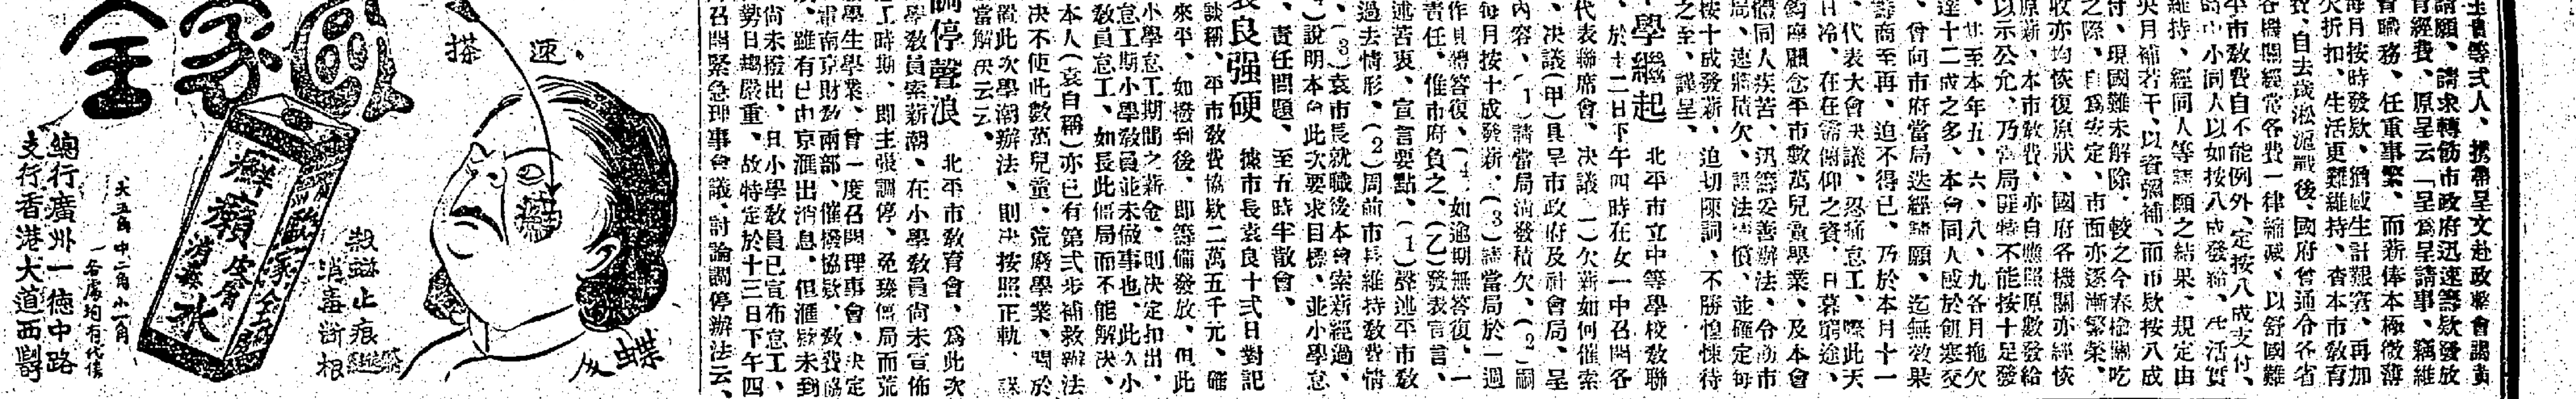 生曾等弍人、携帶呈文赴政整會謁黃
請願、請求轉飭市政府迅速籌欵發放
育經費、原呈云「呈爲呈請事、竊維
會職務、任重事繁、而薪俸本極微薄
每月按時發欵、猶感生計艱窘、再加
欠折扣、生活更難維持、查本市敎育
費、自去歲淞滬戰後、國府曾通令各省
各機關經常各費一律縮减、以舒國難
平市敎費自不能例外、定按八成支付、
時中小同人以如按八成發給、生活實
維持、經同人等請願之結果、規定由
央月補若干、以資彌補、而市欵按八成
付、現國難未解除、較之今春楡關吃
之際、自爲安定、市面亦逐漸繁榮、
收亦均恢復原狀、國府各機關亦經恢
原薪、本市敎費、亦自應照原數發給
以示公允、乃當局匪特不能按十足發
、廿至本年五、六、八、九各月拖欠
達十二成之多、本會同人感於飢寒交
、曾向市府當局迭經請願、迄無效果
籌商至再、迫不得已、乃於本月十一
、代表大會决議、忍痛怠工、際此天
日冷、在在需倜仰之資、日暮窮途、
鈞座顧念平市數萬兒童學業、及本會
體同人疾苦、迅籌妥善辦法、令飭市
局、速將積欠、設法清償、並確定每
按十成發薪、迫切陳詞、不勝惶悚待
之至、謹呈、
學繼起 北平市立中等學校敎聯
、於十二日下午四時在女一中召開各
代表聯席會、决議、一)欠薪如何催索
、决議(甲)具呈市政府及社會局、呈
內容、(1)請當局淸發積欠、(2)嗣
每月按十成發薪、(3)請當局於一週
作具體答復、(4、如逾期無答復、一
責任、惟市府負之、(乙)發表宣言、
述苦衷、宣言要點、(1)聲述平市敎
過去情形、(2)周前市長維持敎費情
、(3)袁市長就職後本會索薪經過、
4)說明本會此次要求目標、並小學怠
、責任問題、至五時半散會、
袁良强硬 據市長袁良十弍日對記
談稱、平市敎費協欵二萬五千元、確
來平、如撥到後、即籌備發放、但此
小學怠工期間之薪金、則决定扣出、
怠工期小學敎員並未做事也、此次小
敎員怠工、如長此僵局而不能解决、
本人(袁自稱)亦已有第弍步補救辦法
决不使此數萬兒童、荒廢學業、關於
置此次學潮辦法、則决按照正軌、謀
當解决云云、
調停聲浪 北平市敎育會、爲此次
學敎員索薪潮、在小學敎員尙未宣佈
怠工時期、即主張調停、免臻僵局而荒
學生學業、曾一度召開理事會、决定
請南京財敎兩部、催撥協欵、敎費協
、雖有已由京滙出消息、但滙欵未到
尙未撥出、且小學敎員已宣布怠工、
勢日趨嚴重、故特定於十三日下午四
召開緊急理事會議、討論調停辦法云、
全家
速搭
癬
蝶
癬癩皮膚消毒水
全家
殺蝨止痕
消毒斷根
大五角中二角小一角
各處均有代售
總行廣州一德中路
支行香港大道西